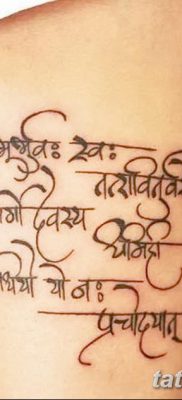 भूर्भुवः स्वः
तत्सवितुर्व
र्गो देवस्य
धीमही
धियो यो नः
प्रचोदयात्
tat